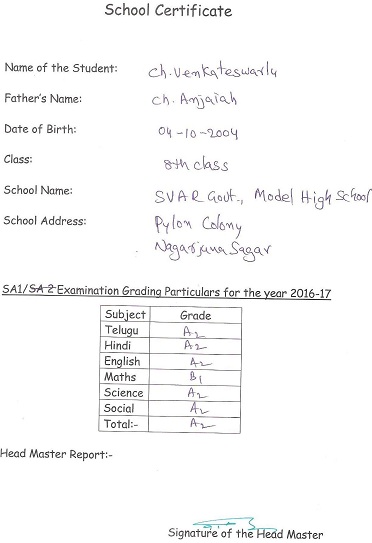 School Certificate
Name of the Student: Ch. Venkateswarlu
Father's Name: Ch. Anjaiah
Date of Birth: 04-10-2004
Class: 8th class
School Name: SVAR Govt., Model High School
School Address: Pylon Colony
Nagarjuna Sagar
SA1/SA 2 Examination Grading Particulars for the year 2016-17
Subject Grade
Telugu A2
Hindi A2
English A2
Maths B1
Science A2
Social A2
Total:- A2
Head Master Report:-
Signature of the Head Master